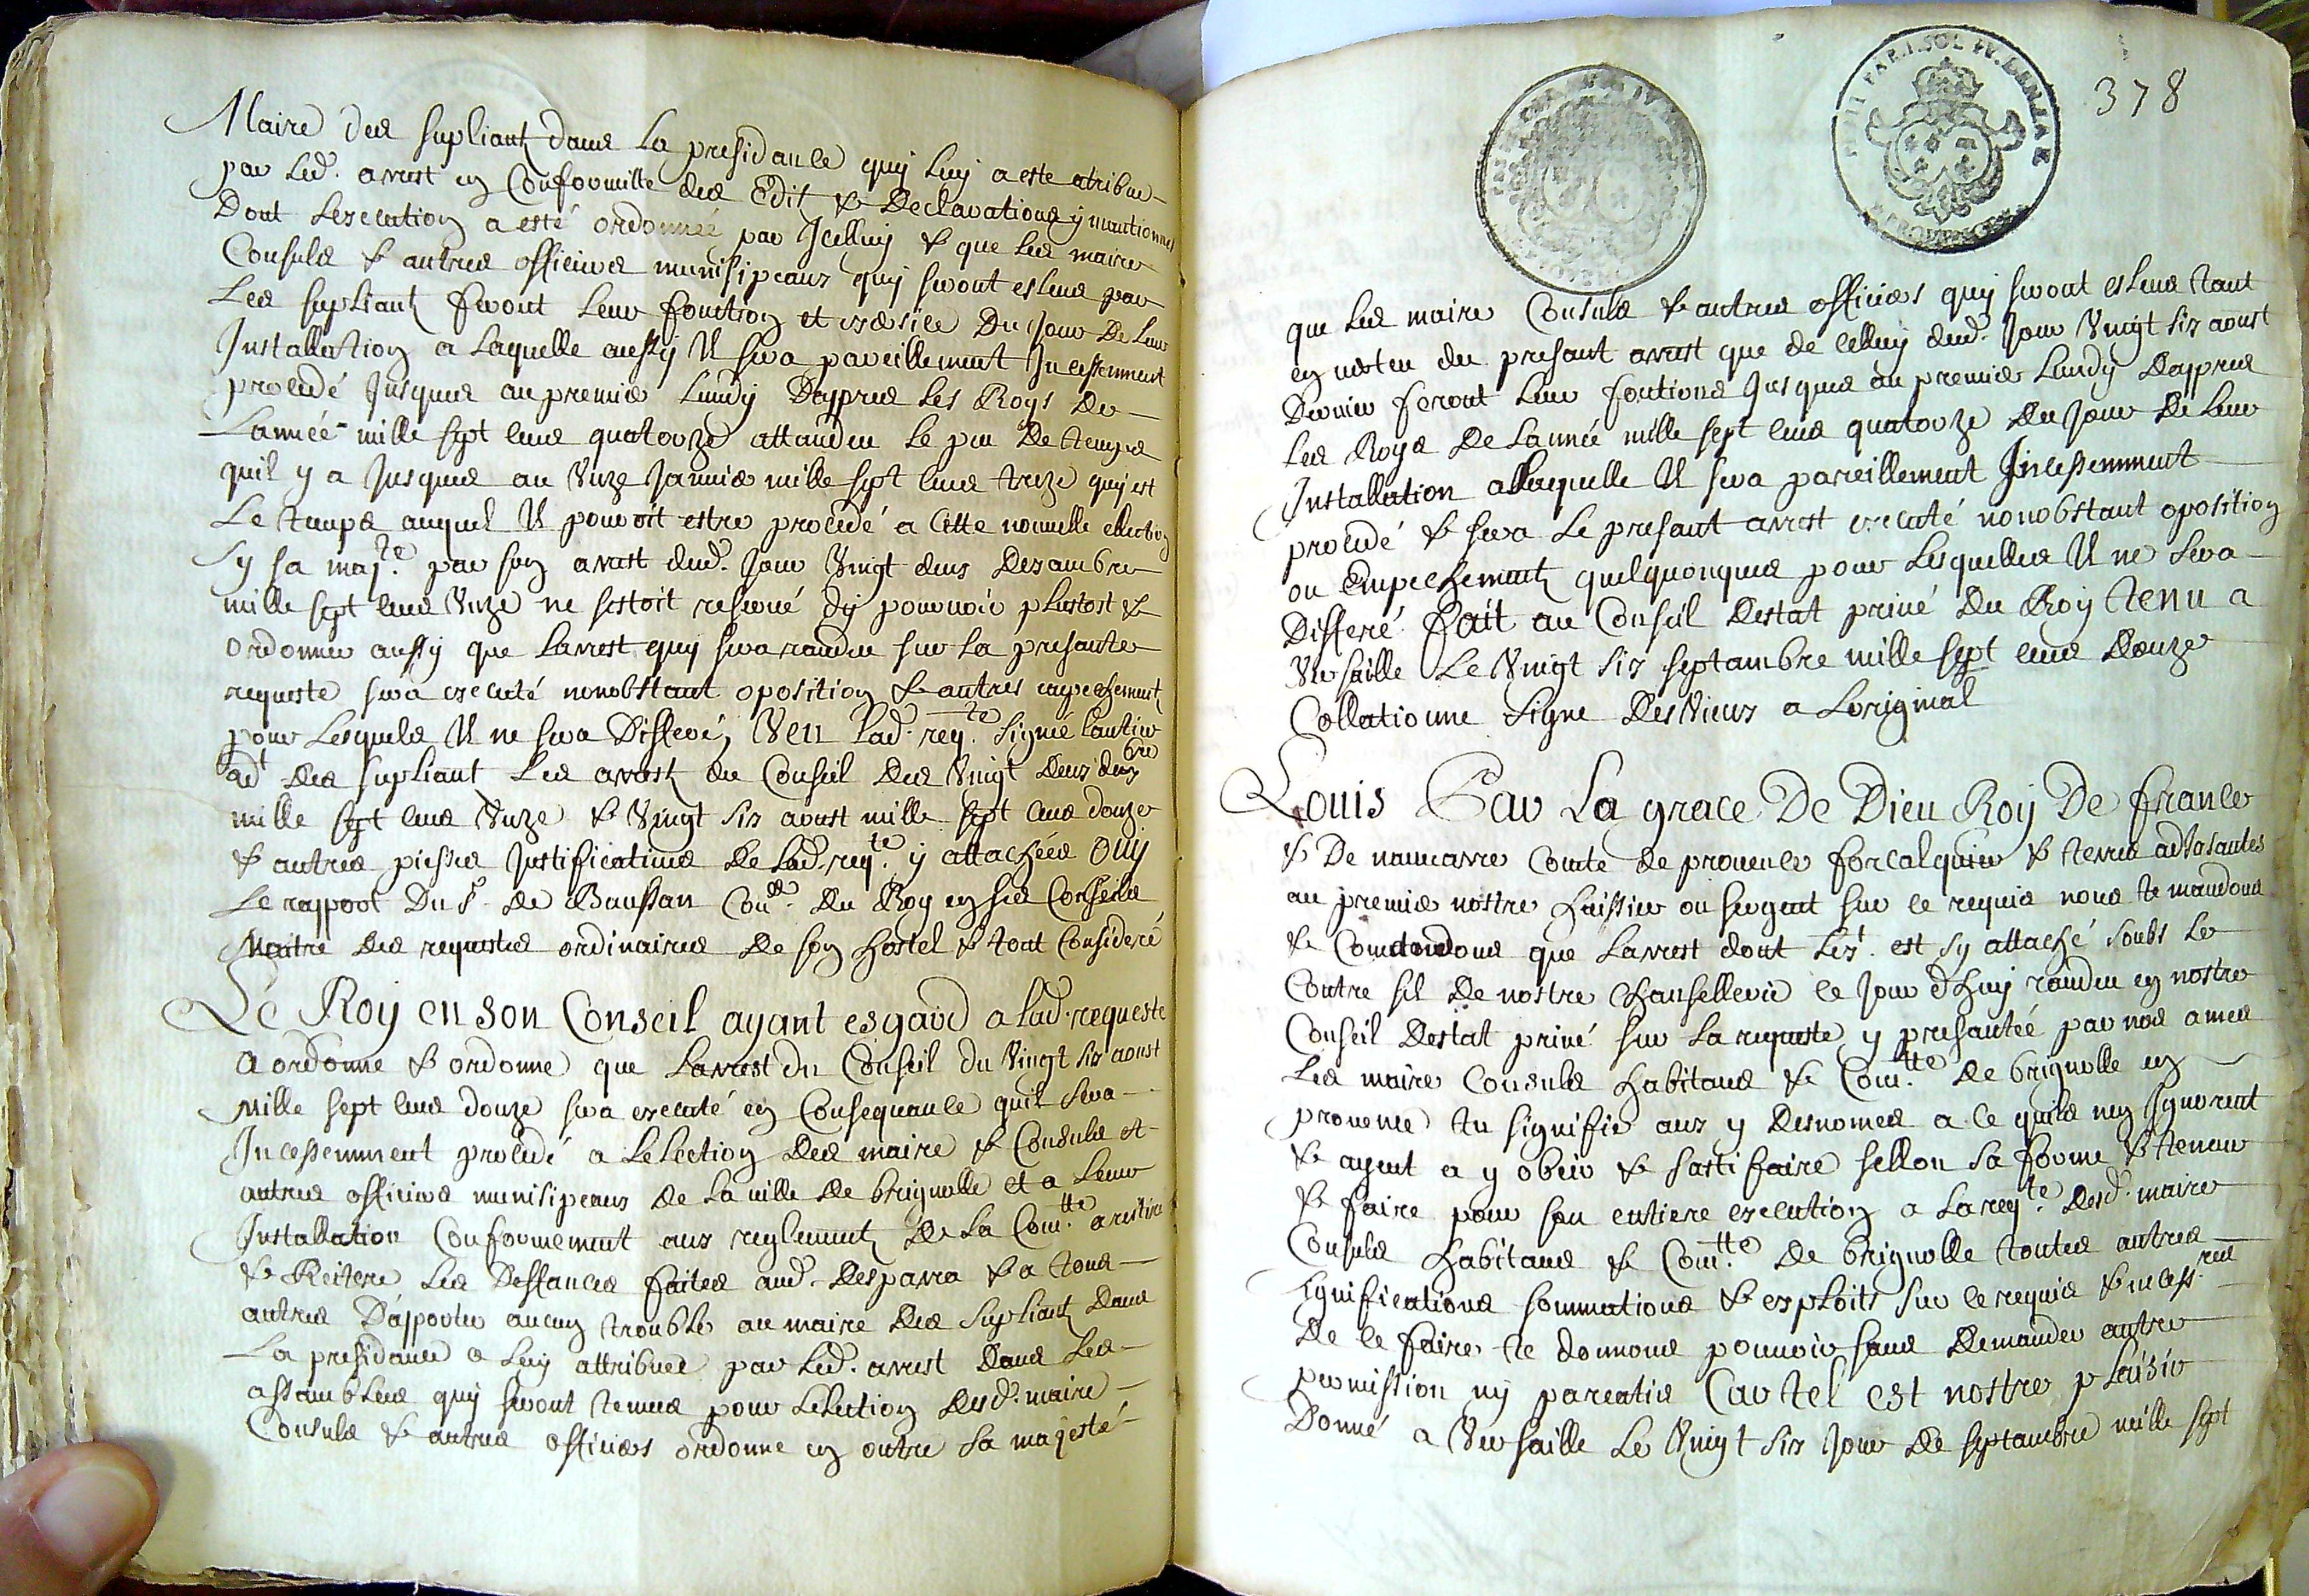 Maire des supliants dans la presidance quy luy a esté atribue
par led. arrest en conformitté des Edit & Declarations y mantionnes
Dont lexecution a esté ordonnéé par Jcelluy & que les maire
Consuls & autres officiers munisipeaux quy seront eslus par
Les supliants feront leur fonction et exersice Du jour De leur
Installation a laquelle aussy Il sera pareillement Incessemment
procedé Jusques au premier Lundy Dappres les Roys De
Lannéé mille sept cens quatorze attandeu le peu De temps
quil y a Jusques au unze Janvier mille sept cens treze quy est
Le temps auquel Il pouvoit estre procedé a cette nouvelle election
Sy sa maj.te par son arrest dud. Jour Vingt deus Desambre
mille sept cens Unze ne sestoit reservé dy pourvoir plustost &
ordonner aussy que larrest quy sera randeu sur la presante
requeste sera executé nonobstant oposition & autres empechements
pour Lesquels Il ne sera Differé, Veu lad. req.te Signeé Lautier
adt des supliant Les arrests du Conseil Des Vingt Deus dexbre
mille sept cens Unze & Vingt six aoust mille sept cens douze
& autres piesses justificatives De lad. req.te y attachéés Ouy
Le rapport Du Sr. de Baussan Con.er Du Roy en ses Conseils
Maitre des requestes ordinaires De son hostel & tout Consideré
Le Roy en son Conseil ayant esgard a lad. requeste
a ordonne & ordonne que Larrest du Conseil du Vingt six aoust
mille sept cens douze sera executé en Consequance quil sera
Incessemment procedé a Lelection des maire & Consuls et
autres officiers munisipeaux De la ville De brignolle et a leur
Installation Conformement aux reglements De la Com.tte
& Reitere les Deffances faites aud. Desparra & a tous
autres D'apporter aucun trouble au maire des supliants Dans
La presidance a luy attribuee par led. arrest Dans les
assamblees quy seront tenues pour Lelection Desd. maire
Consuls & autres officiers ordonne en outre sa majesté
378
que les maire Consuls & autres officiers quy seront eslus tant
en vertu du presant arrest que de celluy dud. Jour Vingt six aoust
Dernier feront leur fontions Jusques au premier Lundy Dappres
les Roys De Lannéé mille sept cens quatorze Du Jour De leur
Installation allaquelle Il sera pareillement Incessemment
procedé & sera le presant arrest executé nonobstant oposition
ou Empechements quelquonques pour Lesquelles Il ne sera
Differé fait au Conseil Destat privé Du Roy tenu a
Versaille Le Vingt six septambre mille sept cens Douze
Collationne Signe Desvieux a Loriginal
Louis Par La grace De Dieu Roy De france
& De navvarre Comte de provence forcalquier & terres adjasantes
au premier nostre huissier ou sergent sur ce requis nous te mandons
& Commandons que Larrest dont Lext. est sy attaché soubs le
Contre sel De nostre Chansellerie ce Jour dhuy randeu en nostre
Conseil Destat privé sur La requeste y presantéé par nos ames
Les maire Consuls habitans & Com.tte De brignolle en
provence tu signifie aux y Desnomes a ce quils nen Ignorent
& ayent a y obeir & sastifaire sellon sa forme & teneur
& faire pour son entiere execution a la req.te Desd. maire
Consuls habitans & Com.tte De brignolle toutes autres
significations sommations & exploits sur ce requis & necess.res
De ce faire te donnons pouvoir sans Demander autre
permission ny pareatis Car tel est nostre plaisir
Donné a Versaille Le Vingt six Jour De septambre mille sept